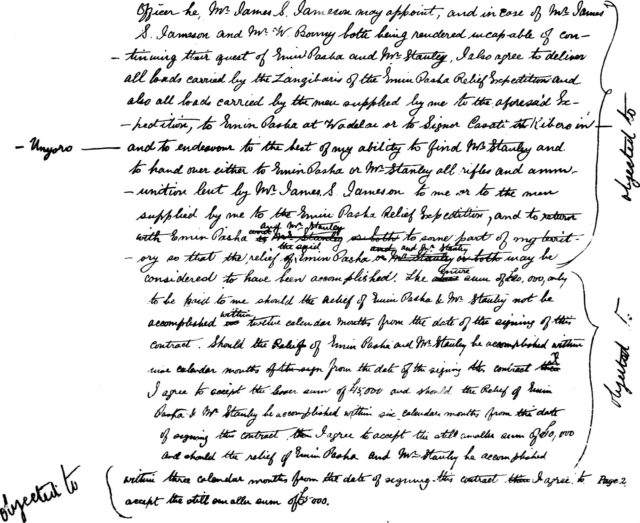 Officer he, Mr James S. Jameson may appoint, and in case of Mr James
S. Jameson and Mr W. Bonny both being rendered incapable of con-
-tinuing their quest of Emin Pasha and Mr Stanley, I also agree to deliver
all loads carried by the Zanzibaris of the Emin Pasha Relief Expedition and
also all loads carried by the men supplied by me to the aforesaid Ex-
-pedition, to Emin Pasha at Wadelai or to Signor Casati at Kibero in
- Unyoro
and to endeavour to the best of my ability to find Mr Stanley and
to hand over either to Emin Pasha or Mr Stanley all rifles and amm-
-unition lent by Mr James S. Jameson to me or to the men
supplied by me to the Emin Pasha Relief Expedition, and to return
and Mr Stanley
with Emin Pasha or Mr Stanley or both to some part of my territ-
the said and Mr Stanley
ory so that the relief of Emin Pasha or Mr Stanley or both may be
entire
considered to have been accomplished. The sum of £20,000, only
to be paid to me should the Relief of Emin Pasha & Mr Stanley not be
within
accomplished twelve calendar months from the date of the signing of this
contract. Should the Relief of Emin Pasha and Mr Stanley be accomplished within
nine calendar months from the date of the signing the contract
I agree to accept the lower sum of £15,000 and should the Relief of Emin
Pasha & Mr Stanley be accomplished within six calendar months from the date
of signing this contract then I agree to accept the still smaller sum of £10,000
and should the relief of Emin Pasha and Mr Stanley be accomplished
within three calendar months from the date of signing this contract then I agree to
Page 2
accept the still smaller sum of
objected to
objected to
objected to